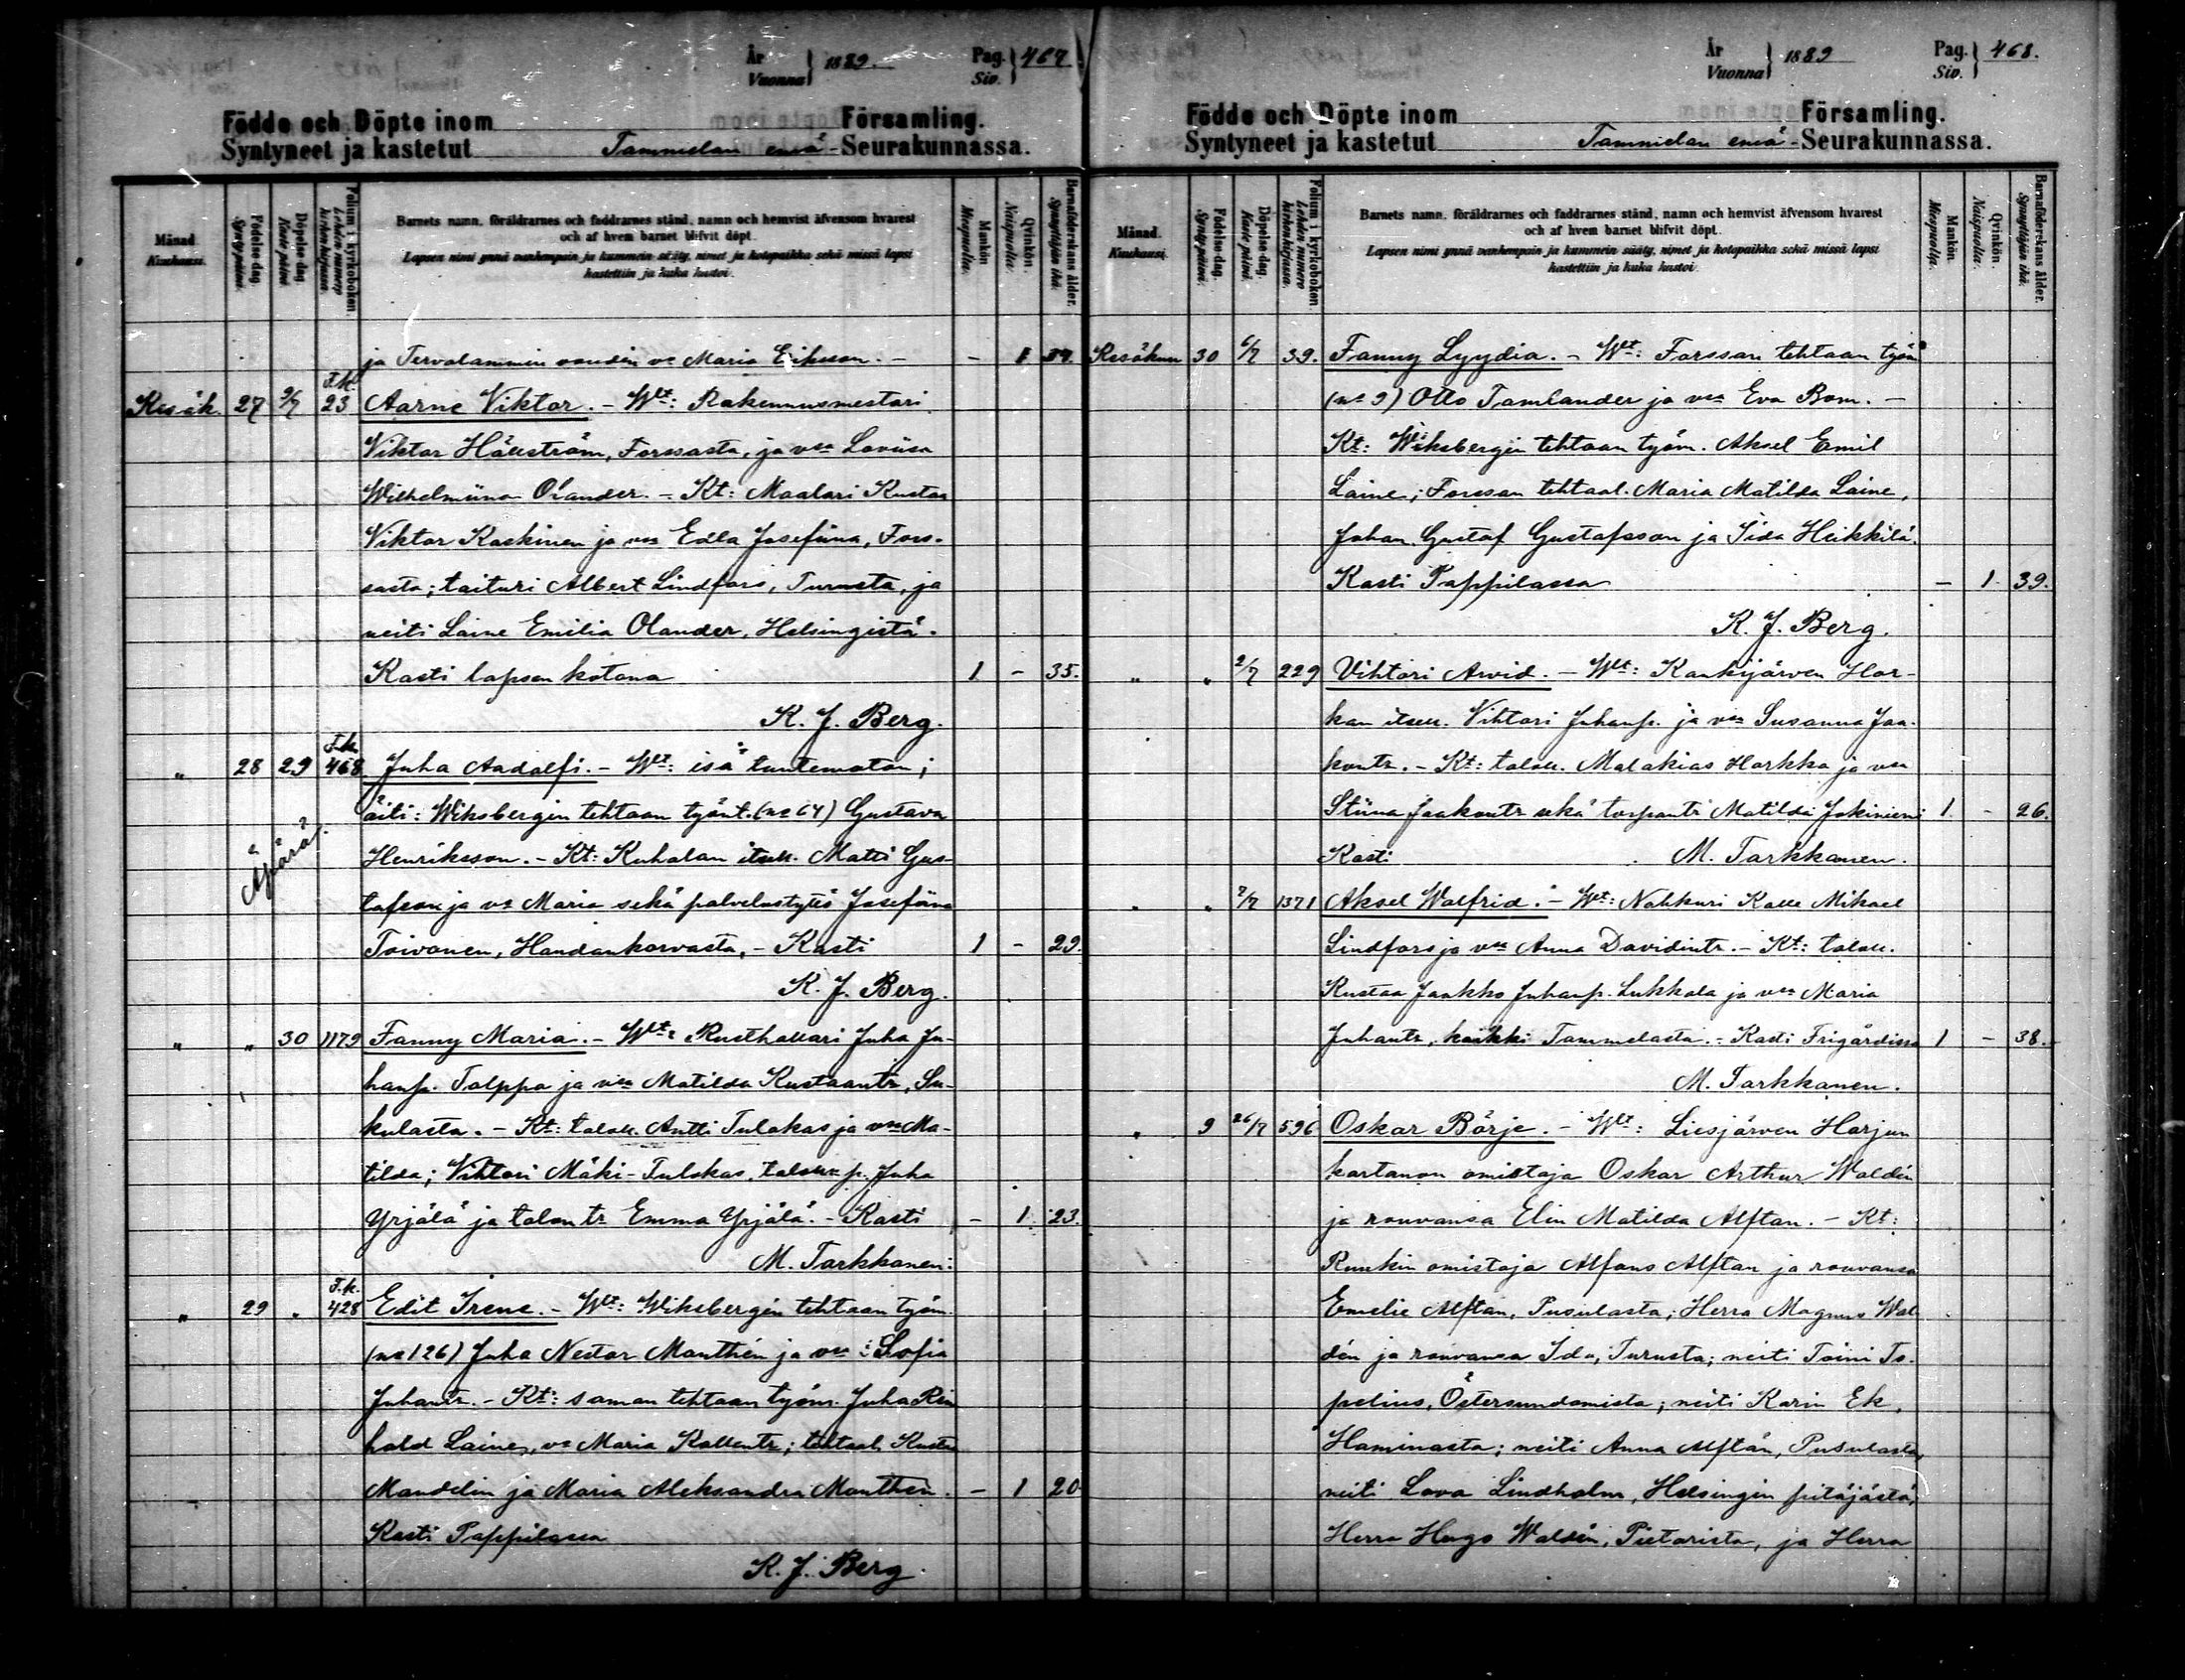 År
Vuonna } 1889.
Pag.
Siv. } 467
Födde och Döpte inom Församling.
Syntyneet ja kastetut Tammelan emä- Seurakunnassa.
Månad.
Kuukausi.
Födelse dag.
Syntypäivä.
Döpelse dag.
Kaste päivä
Folium i kyrkoboken.
Lehden numero kirkonkirjassa.
Barnets namn, föräldrarnes och faddrarnes stånd, namn och hemvist äfvensom hvarest
och af hvem barnet blifvit döpt.
Lapsen nimi ynnä vanhempain ja kummein sääty, nimet ja kotopaikka sekä missä lapsi
kastettiin ja kuka kastoi.
Mankön
Miespuolia.
Qvinkön.
Naispuolia.
Barnaföderskans ålder.
Synnyttäjän ikä.
ja Tervalammin voudin vo Maria Eriksson. - - 1 37.
Kesäk. 27 9/7 T.k. 23 Aarne Viktor. - Wlt: Rakennusmestari
Viktor Hällström, Forssasta, ja vsa Loviisa
Wilhelmiina Olander. - Kt: Maalari Kustaa
Viktor Koskinen ja vsa Edla Josefiina, Fors-
sasta; taituri Albert Lindfors, Turusta, ja
neiti Laine Emilia Olander, Helsingistä.
Kasti lapsen kotona 1 - 35.
K. J. Berg.
" 28 29 T.k. 468 Juha Aadolfi. - Wlt: isä tuntematon;
äiti: Wiksbergin tehtaan työnt. (no 64) Gustava
Äpärä.
Henriksson. - Kt: Kuhalan itsell. Matti Gus-
tafsson ja vo Maria sekä palvelustyttö Josefiina
Toivonen, Haudankorvasta, - Kasti 1 - 29.
K. J. Berg.
" " 30 1179 Fanny Maria. - Wlt: Rusthollari Juha Ju-
hanp. Talppa ja vsa Matilda Kustaantr, Su-
kulasta. - Kt: taloll. Antti Tulokas ja vsa Ma-
tilda; Vihtori Mäki-Tulokas, talon p. Juha
Yrjälä ja talon tr Emma Yrjälä. - Kasti - 1 23.
M. Tarkkanen.
" 29 " T.k. 428 Edit Irene. - Wlt: Wiksbergin tehtaan työm.
(no 126) Juha Nestor Manthén ja vsa Sofia
Juhantr. - Kt: saman tehtaan työm. Juha Rein
hold Laine, vo Maria Kallentr; tehtaal. Kustaa
Mandelin ja Maria Aleksandra Manthén. - 1 20
Kasti Pappilassa
K. J. Berg.
År
Vuonna } 1889
Pag.
Siv. } 468.
Födde och Döpte inom Församling.
Syntyneet ja kastetut Tammelan emä- Seurakunnassa.
Månad.
Kuukausi.
Födelse-dag.
Synty-päivä.
Döpelse-dag.
Kaste-päivä.
Folium i kyrkoboken.
Lehden numero kirkonkirjassa.
Barnets namn, föräldrarnes och faddrarnes stånd, namn och hemvist äfvensom hvarest
och af hvem barnet blifvit döpt.
Lapsen nimi ynnä vanhempain ja kummein sääty, nimet ja kotopaikka sekä missä lapsi
kastettiin ja kuka kastoi.
Mankön.
Miespuolia.
Qvinkön.
Naispuolia.
Barnaföderskans ålder.
Synnyttäjän ikä.
Kesäkuu 30 6/7 39. Fanny Lyydia. - Wlt: Forssan tehtaan työm
(no 9) Otto Tamlander ja vsa Eva Bom. -
Kt: Wiksbergin tehtaan työm. Aksel Emil
Laine; Forssan tehtaal. Maria Matilda Laine,
Johan Gustaf Gustafsson ja Iida Heikkilä.
Kasti Pappilassa - 1 39.
K. J. Berg.
" " 2/7 229 Vihtori Arvid. - Wlt: Kaukijärven Har-
kan itsell. Vihtori Juhanp. ja vsa Susanna Jaa-
kontr. - Kt: taloll. Malakias Harkka ja vsa
Stiina Jaakontr sekä torpantr Matilda Jokinieni 1 - 26.
Kasti M. Tarkkanen.
" " 7/7 1371 Aksel Walfrid. - Wlt: Nahkuri Kalle Mikael
Lindfors ja vsa Anna Davidintr. - Kt: taloll.
Kustaa Jaakko Juhanp. Lukkala ja vsa Maria
Juhantr, kaikki Tammelasta. - Kasti Frigårdissa 1 - 38.
M. Tarkkanen.
" 9 26/7 596 Oskar Börje. - Wlt: Liesjärven Harjun
kartanon omistaja Oskar Arthur Waldén
ja rouvansa Elin Matilda Alftan. - Kt:
Ruukin omistaja Alfons Alftan ja rouvansa
Emelie Alftan, Pusulasta; Herra Magnus Wal
dén ja rouvansa Ida, Turusta; neiti Toini To-
pelius, Östersundomista; neiti Karin Ek,
Haminasta; neiti Anna Alftan, Pusulasta,
neiti Lova Lindholm, Helsingin pitäjästä,
Herra Hugo Waldén, Pietarista, ja Herra